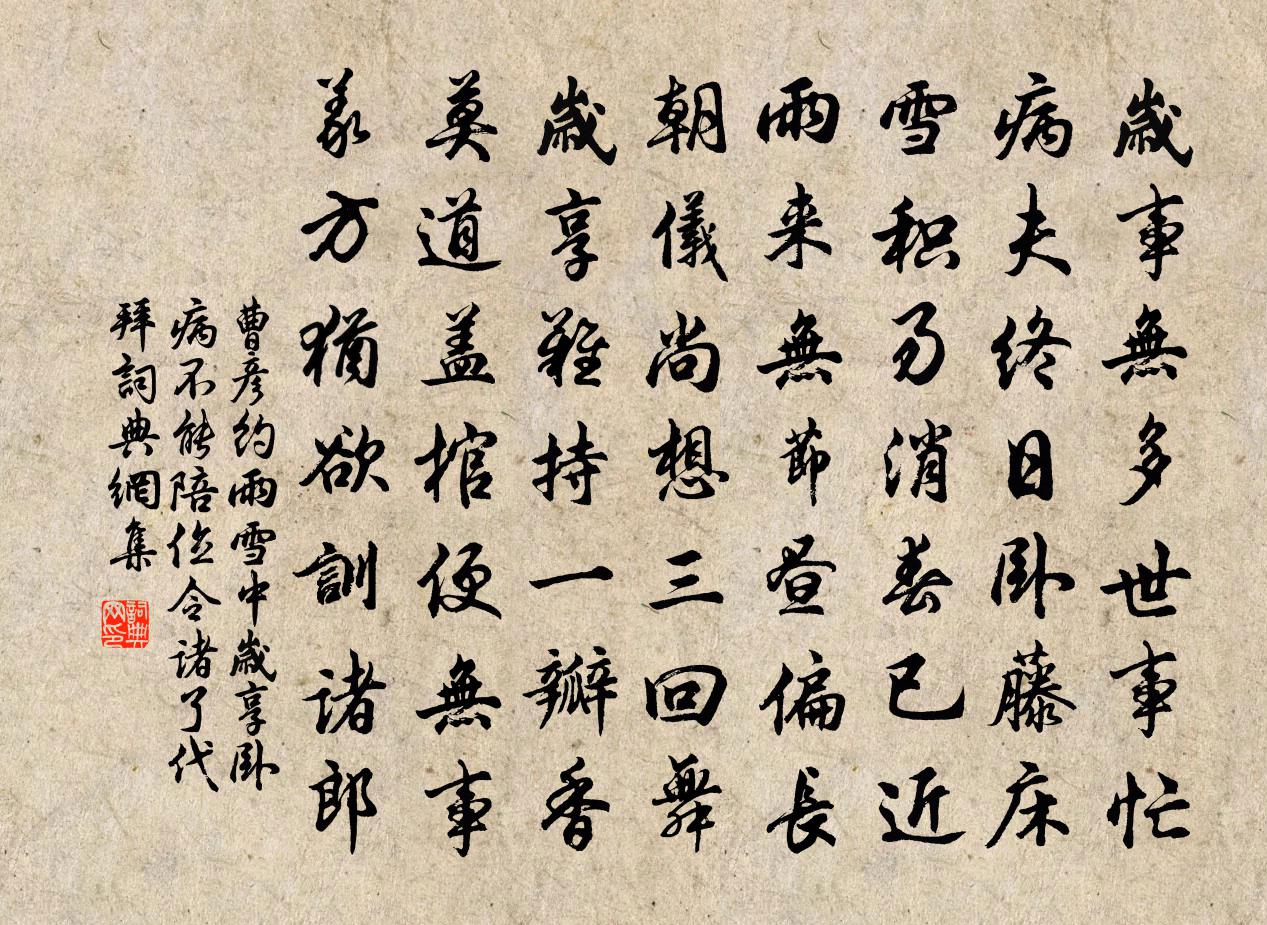 歲事無多世事忙
病夫終日卧藤床
雪积易消春已近
雨来無節昼偏長
朝儀尚想三回舞
歲享難持一瓣香
莫道盖棺便無事
義方猶欲訓諸郎
曹彦約雨雪中歲享卧
病不能陪位令諸丁代
拜詞典網集
詞典
网印